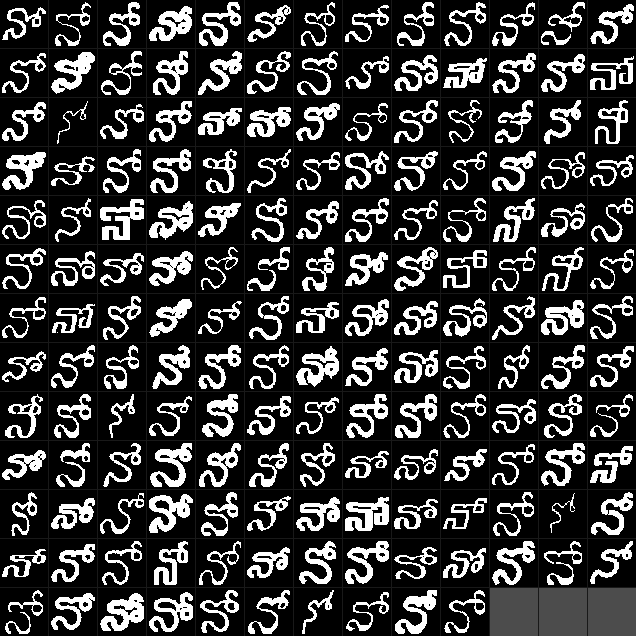 నో నో నో నో నో నో నో నో నో నో నో నో నో
నో నో నో నో నో నో నో నో నో నో నో నో నో
నో నో నో నో నో నో నో నో నో నో నో నో నో
నో నో నో నో నో నో నో నో నో నో నో నో నో
నో నో నో నో నో నో నో నో నో నో నో నో నో
నో నో నో నో నో నో నో నో నో నో నో నో నో
నో నో నో నో నో నో నో నో నో నో నో నో నో
నో నో నో నో నో నో నో నో నో నో నో నో నో
నో నో నో నో నో నో నో నో నో నో నో నో నో
నో నో నో నో నో నో నో నో నో నో నో నో నో
నో నో నో నో నో నో నో నో నో నో నో నో నో
నో నో నో నో నో నో నో నో నో నో నో నో నో
నో నో నో నో నో నో నో నో నో నో